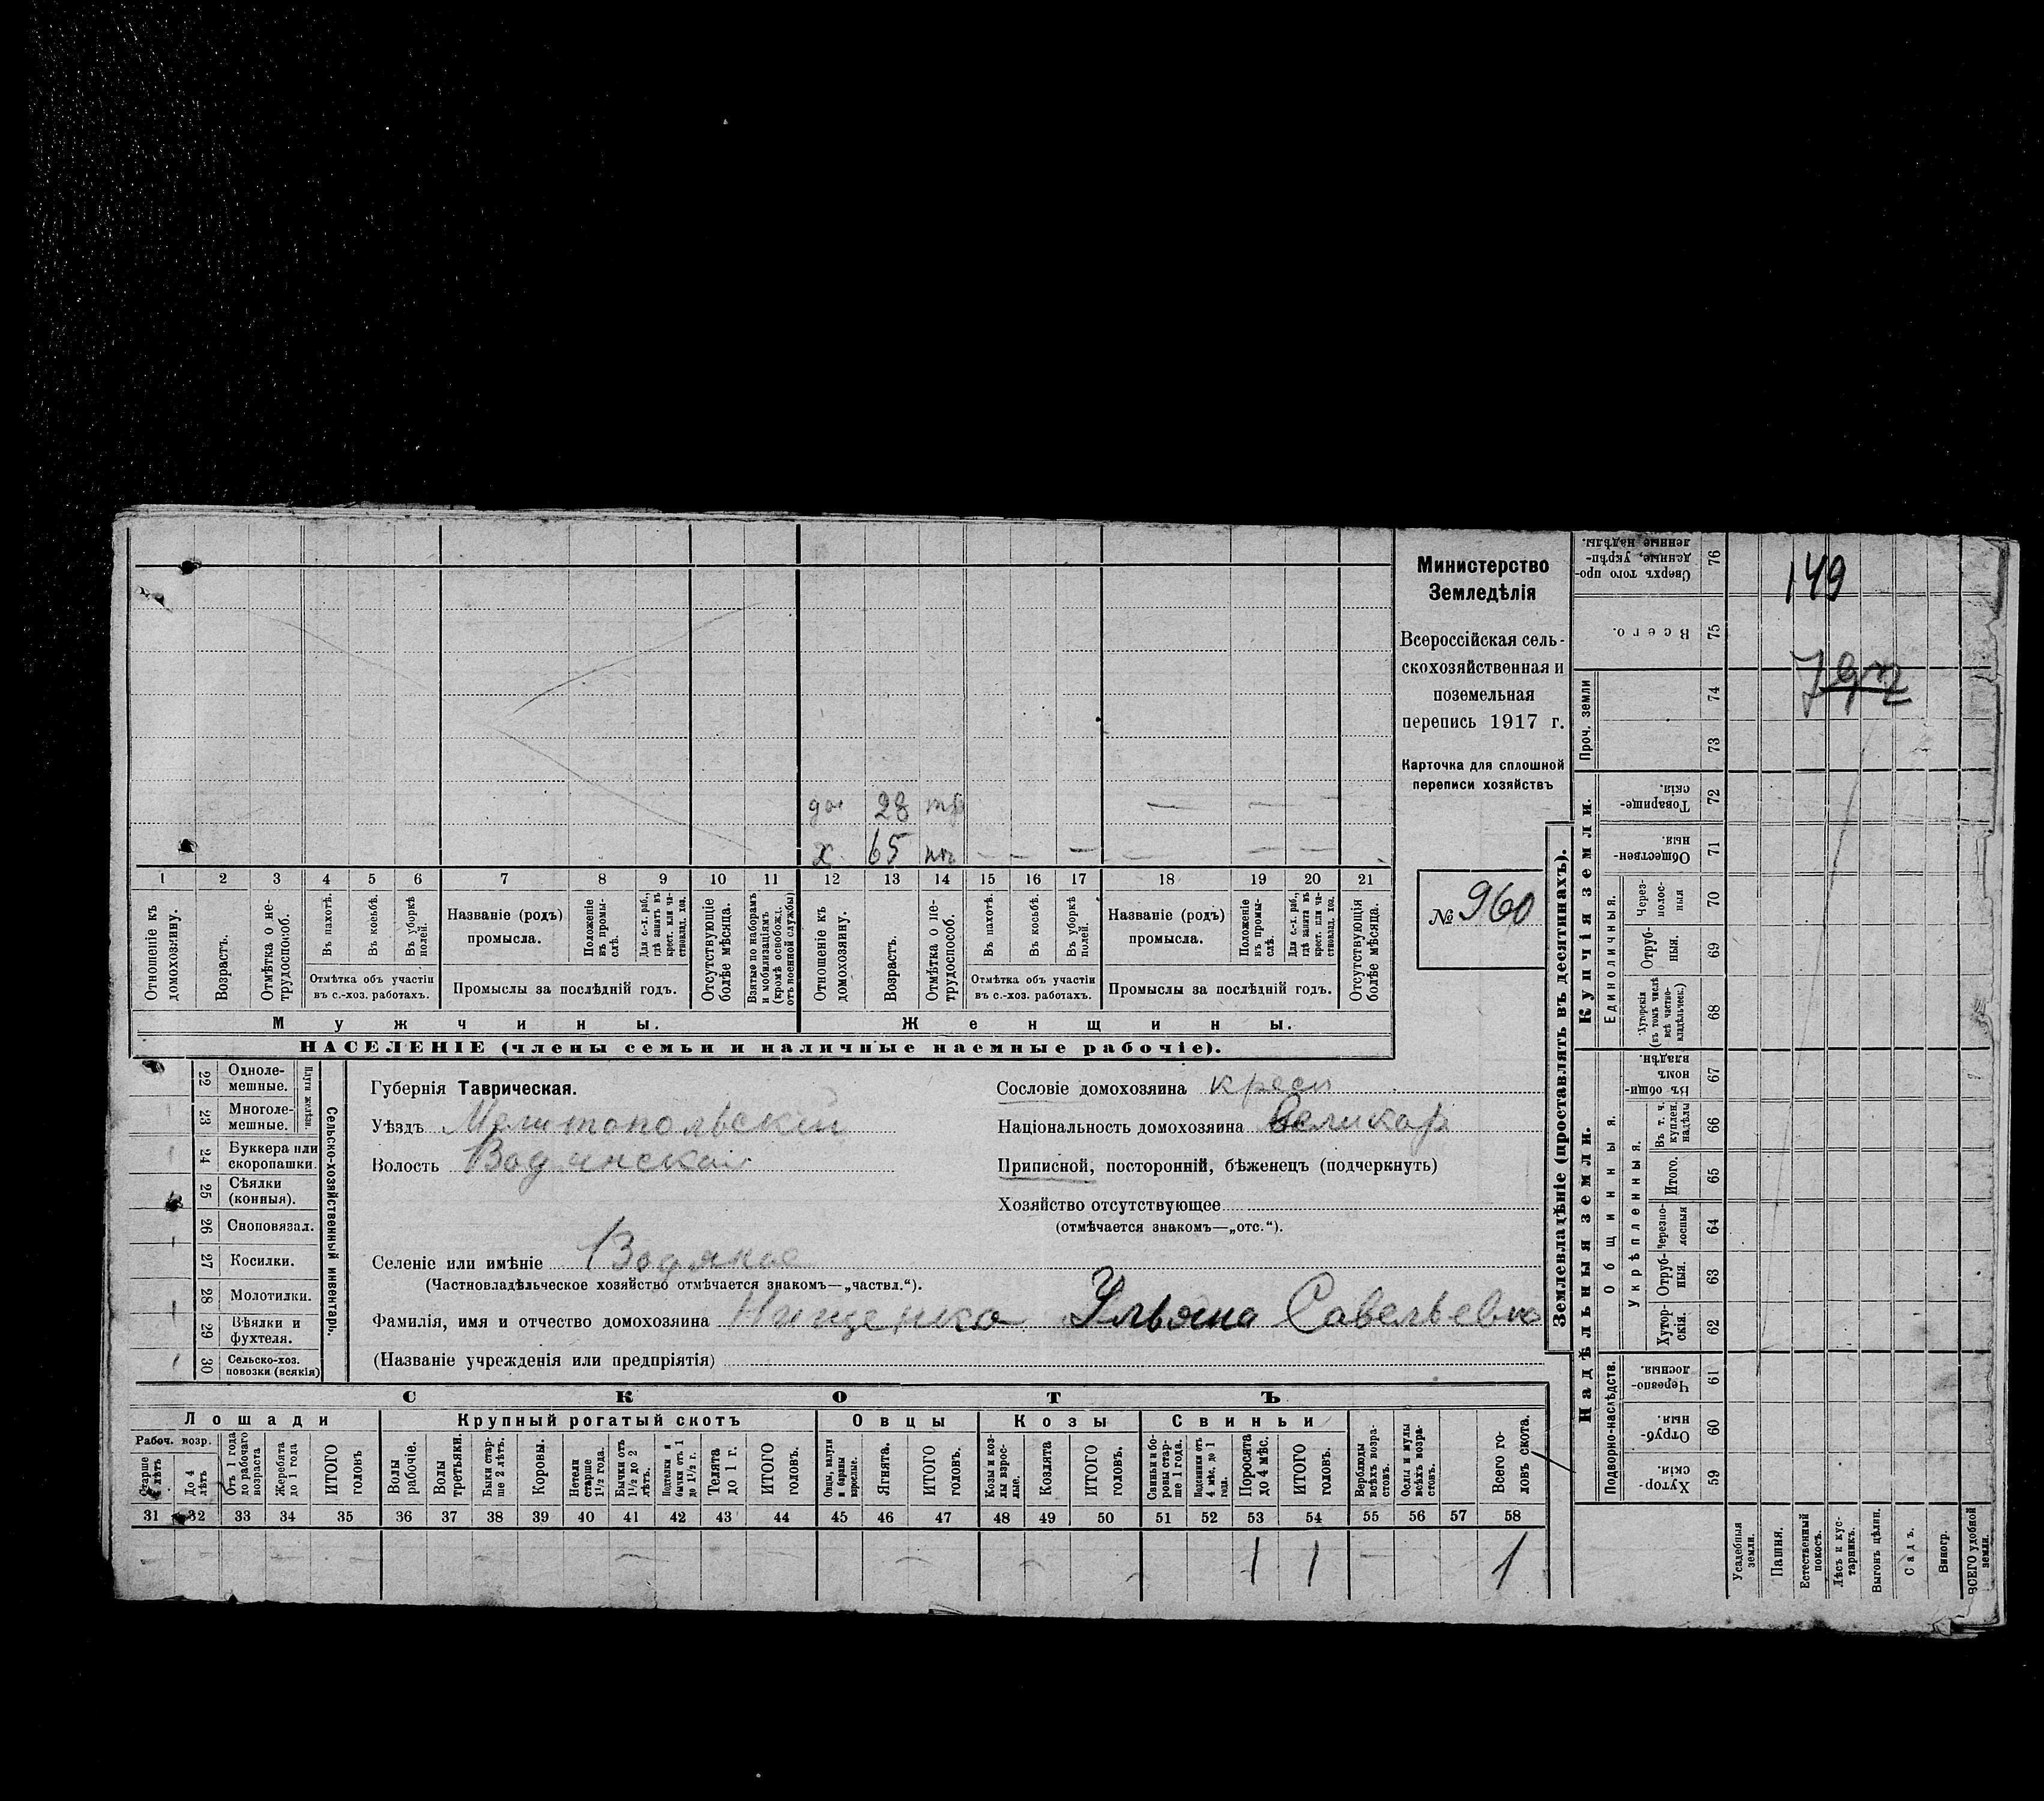 Министерство
Земледѣлія
Всероссійская сель-
скохозяйственная и
поземельная
перепись 1917 г.
Карточка для сплошной
переписи хозяйствъ
№ 960
28
х 65
1 2 3 4 5 6 7 8 9 10 11 12 13 14 15 16 17 18 19 20 21
Отношеніе къ домохозяину.
Возрастъ.
Отмѣтка о не-трудоспособ.
Въ пахотѣ.
Въ косьбѣ.
Въ уборкѣ полей.
Отмѣтка объ участіи
въ с.-хоз. работахъ.
Названіе (родъ)
промысла.
Положеніе въ промы-слѣ.
Для с.-х. раб., гдѣ занятъ въ крест. или ча-стновлад. хоз.
Промыслы за послѣдній годъ.
Отсутствующіе болѣе мѣсяца.
Взятые по наборамъ и мобилизаціямъ (кромѣ освобожд. отъ военной службы)
Отношеніе къ домохозяину.
Возрастъ.
Отмѣтка о не-трудоспособ.
Въ пахотѣ.
Въ косьбѣ.
Въ уборкѣ полей.
Отмѣтка объ участіи
въ с.-хоз. работахъ.
Названіе (родъ)
промысла.
Положеніе въ промы-слѣ.
Для с.-х. раб., гдѣ занята въ крест. или ча-стновлад. хоз.
Промыслы за послѣдній годъ.
Отсутствующія болѣе мѣсяца.
Мужчины. Женщины.
НАСЕЛЕНІЕ (члены семьи и наличные наемные рабочіе).
Сельско-хозяйственный инвентарь.
Плуги желѣзн.
22 Одноле-мешные.
23 Многоле-мешные.
24 Буккера или скоропашки.
25 Сѣялки (конныя).
26 Сноповязал.
27 Косилки.
28 Молотилки.
29 Вѣялки и фухтеля.
30 Сельско-хоз. повозки (всякія)
Губернія Таврическая.
Уѣздъ Мелитопольскій
Волость Водянская
Сословіе домохозяина крест
Національность домохозяина Великор
Приписной, посторонній, бѣженецъ (подчеркнуть)
Хозяйство отсутствующее
(отмѣчается знакомъ—„отс.“).
Селеніе или имѣніе Водяное
(Частновладѣльческое хозяйство отмѣчается знакомъ—„частвл.“).
Фамилія, имя и отчество домохозяина Нищенко Ульяна Савельевна
(Названіе учрежденія или предпріятія)
СКОТЪ
Лошади Крупный рогатый скотъ Овцы Козы Свиньи
Рабоч. возр.
Старше 4 лѣтъ
До 4 лѣтъ
Отъ 1 года до рабочаго возраста
Жеребята до 1 года
ИТОГО головъ
Волы рабочіе.
Волы третьяки.
Быки стар-ше 2 лѣтъ.
Коровы.
Нетели старше 1½ года.
Бычки отъ 1½ до 2 лѣтъ.
Подтелки и бычки отъ 1 до 1½ г.
Телята до 1 г.
ИТОГО головъ.
Овцы, валухи и бараны взрослые.
Ягнята.
ИТОГО головъ.
Козы и коз-лы взрос-лые.
Козлята
ИТОГО головъ.
Свиньи и бо-ровы стар-ше 1 года.
Подсвинки отъ 4 мѣс. до 1 года.
Поросята до 4 мѣс.
ИТОГО головъ.
Верблюды всѣхъ возра-стовъ.
Ослы и мулы всѣхъ возра-стовъ.
Всего го-ловъ скота.
31 32 33 34 35 36 37 38 39 40 41 42 43 44 45 46 47 48 49 50 51 52 53 54 55 56 57 58
1 1 1
Землевладѣніе (проставлять въ десятинахъ).
Надѣльныя земли. Купчія земли.
Подворно-наслѣдств.
Общинныя.
Укрѣпленныя.
Единоличныя.
Проч. земли
59 Хутор-скія.
60 Отруб-ныя.
61 Черезпо-лосныя.
62 Хутор-скія.
63 Отруб-ныя.
64 Черезпо-лосныя
65 Итого.
66 Въ т. ч. куплен. надѣлы
67 Въ общин-номъ владѣн.
68 Хуторскія (въ томъ числѣ всѣ частно-владѣльческ.)
69 Отруб-ныя.
70 Через-полос-ныя
71 Обществен-ныя
72 Товарище-скія.
73
74
75 Всего.
76 Сверхъ того про-данные, укрѣп-ленные надѣлы.
149
Усадебныя земли.
Пашня.
Естественный покосъ.
Лѣсъ и кус-тарникъ.
Выгонъ цѣлин.
Садъ.
Виногр.
ВСЕГО удобной земли.